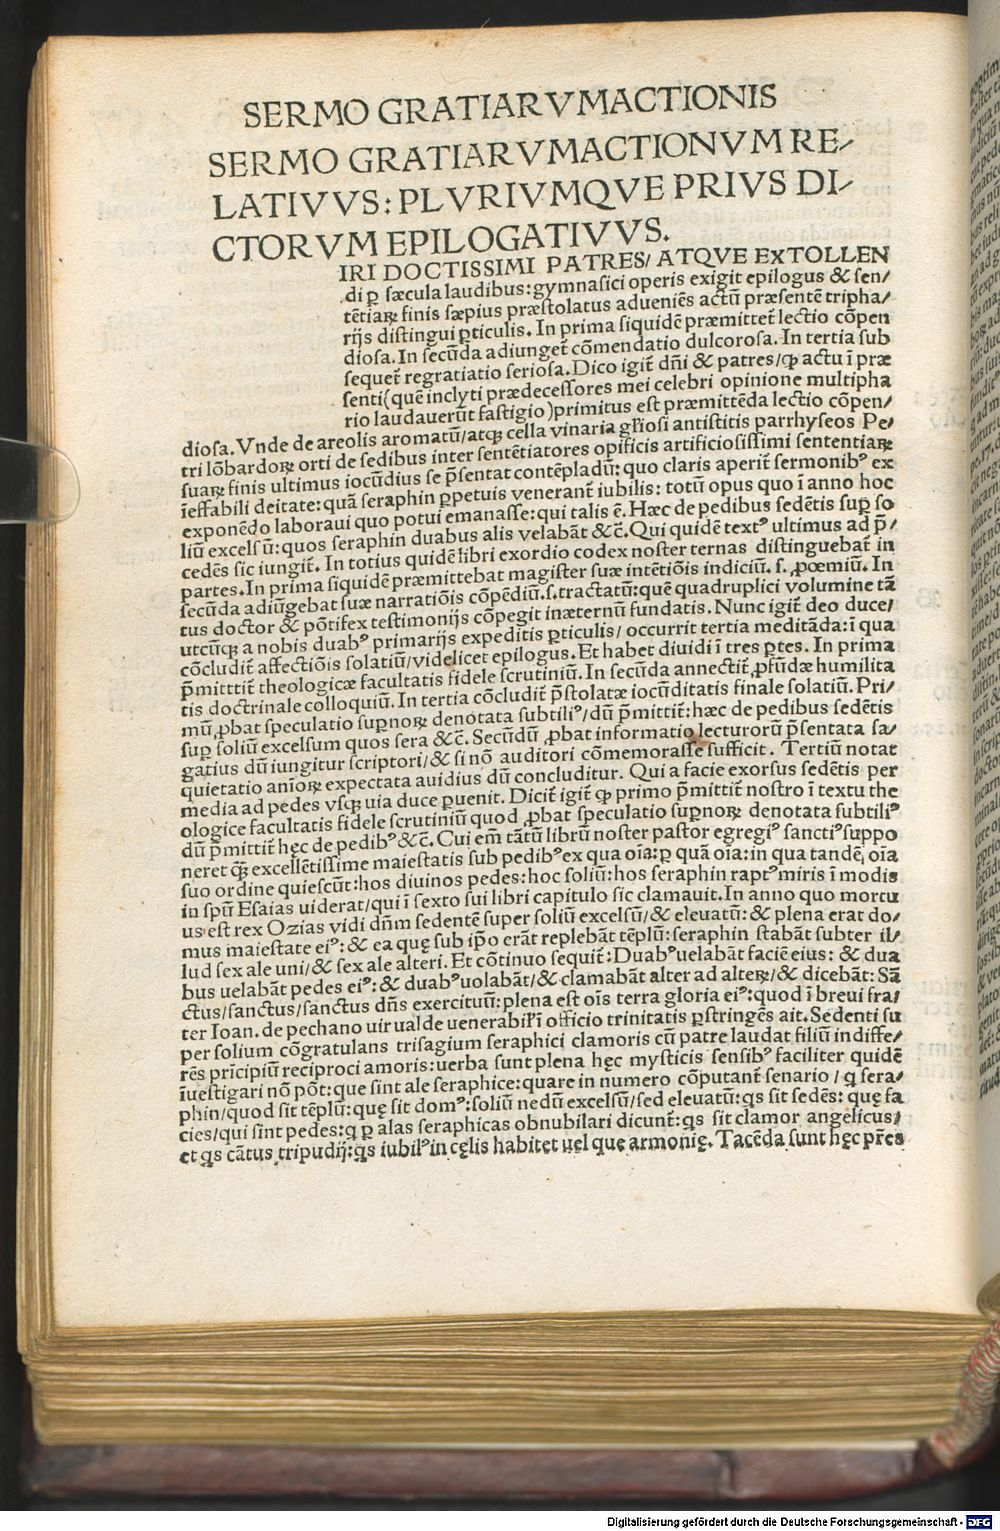 SERMO GRATIARVMACTIONIS
SERMO GRATIARVMACTIONVM RE/
LATIVVS: PLVRIVMQVE PRIVS DI/
CTORVM EPILOGATIVVS.
IRI DOCTISSIMI PATRES/ ATQVE EXTOLLEN
di ꝑ sæcula laudibus: gymnasici operis exigit epilogus & sen/
tẽtiaꝝ finis sæpius præstolatus adueniẽs actũ præsentẽ tripha/
rijs distingui ꝑticulis. In prima siquidẽ præmittet̃ lectio cõpen
diosa. In secũda adiunget̃ cõmendatio dulcorosa. In tertia sub
sequet̃ regratiatio seriosa. Dico igit̃ dñi & patres/ ꝙ actu ĩ præ
senti (quẽ inclyti prædecessores mei celebri opinione multipha
rio laudauerũt fastigio) primitus est præmittẽda lectio cõpen/
diosa. Vnde de areolis aromatũ/ atqꝫ cella vinaria gl̃iosi antistitis parrhyseos Pe/
tri lõbardoꝝ orti de sedibus inter sentẽtiatores opificis artificiosissimi sententiaꝝ
suaꝝ finis ultimus iocũdius se p̃sentat contẽpladũ: quo claris aperit̃ sermonibꝰ ex
ĩeffabili deitate: quã seraphin ꝑpetuis venerant̃ iubilis: totũ opus quo ĩ anno hoc
exponẽdo laboraui quo potui emanasse: qui talis ẽ. Hæc de pedibus sedẽtis sup̃ so
liũ excelsũ: quos seraphin duabus alis velabãt &c̃. Qui quidẽ textꝰ ultimus ad p̃/
cedẽs sic iungit̃. In totius quidẽ libri exordio codex noster ternas distinguebat̃ in
partes. In prima siquidẽ præmittebat magister suæ intẽtiõis indiciũ. s. ꝓœmiũ. In
secũda adiũgebat suæ narratiõis cõpẽdiũ. s. tractatũ: quẽ quadruplici volumine tã
tus doctor & põtifex testimonijs cõpegit inæternũ fundatis. Nunc igit̃ deo duce/
utcũqꝫ a nobis duabꝰ primarijs expeditis ꝑticulis/ occurrit tertia meditãda: ĩ qua
cõcludit̃ affectiõis solatiũ/ videlicet epilogus. Et habet diuidi ĩ tres ꝑtes. In prima
p̃mittit̃ theologicæ facultatis fidele scrutiniũ. In secũda annectit̃ ꝓfũdæ humilita
tis doctrinale colloquiũ. In tertia cõcludit̃ p̃stolatæ iocũditatis finale solatiũ. Pri/
mũ ꝓbat speculatio supnoꝝ denotata subtiliꝰ/ dũ p̃mittit̃: hæc de pedibus sedẽtis
sup̃ soliũ excelsum quos sera &c̃. Secũdũ ꝓbat informatio lecturorũ p̃sentata sa/
gatius dũ iungitur scriptori/ & si nõ auditori cõmemorasse sufficit. Tertiũ notat
quietatio anĩoꝝ expectata auidius dũ concluditur. Qui a facie exorsus sedẽtis per
media ad pedes vsqꝫ uia duce ꝑuenit. Dicit̃ igit̃ ꝙ primo p̃mittit̃ nostro ĩ textu the
ologice facultatis fidele scrutiniũ quod ꝓbat speculatio supnoꝝ denotata subtiliꝰ
dũ p̃mittit̃ hęc de pedibꝰ &c̃. Cui em̃ tãtũ librũ noster pastor egregiꝰ sanctiꝰ suppo
neret q̃ꝫ excellẽtissime maiestatis sub pedibꝰ ex qua oĩa: ꝑ quã oĩa: in qua tandẽ oĩa
suo ordine quiescũt: hos diuinos pedes: hoc soliũ: hos seraphin raptꝰ miris ĩ modis
in spũ Esaias uiderat/ qui ĩ sexto sui libri capitulo sic clamauit. In anno quo mortu
us est rex Ozias vidi dñm sedentẽ super soliũ excelsũ/ & eleuatũ: & plena erat do/
mus maiestate eiꝰ: & ea quę sub ip̃o erãt replebãt tẽplũ: seraphin stabãt subter il/
lud sex ale uni/ & sex ale alteri. Et cõtinuo sequit̃: Duabꝰ uelabãt faciẽ eius: & dua
bus uelabãt pedes eiꝰ: & duabꝰ uolabãt/ & clamabãt alter ad alteꝝ/ & dicebãt: Sã
ctus/ sanctus/ sanctus dñs exercituũ: plena est oĩs terra gloria eiꝰ: quod ĩ breui fra/
ter Ioan. de pechano uir ualde uenerabil̃ ĩ officio trinitatis ꝑstringẽs ait. Sedenti su
per solium cõgratulans trisagium seraphici clamoris cũ patre laudat filiũ indiffe/
rẽs prĩcipiũ reciproci amoris: uerba sunt plena hęc mysticis sensibꝰ faciliter quidẽ
ĩuestigari nõ põt: que sint ale seraphice: quare in numero cõputant̃ senario/ q̃ sera/
phin/ quod sit tẽplũ: quę sit domꝰ: soliũ nedũ excelsũ/ sed eleuatũ: q̃s sit sedẽs: quę fa
cies/ qui sint pedes: q̃ ꝑ alas seraphicas obnubilari dicunt̃: q̃s sit clamor angelicus/
et q̃s cãtus tripudij: q̃s iubilꝰ in cęlis habitet uel que armonię. Tacẽda sunt hęc p̃res
Digitalisierung gefördert durch die Deutsche Forschungsgemeinschaft - DFG